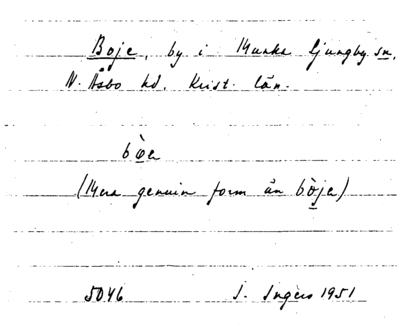 Boje, by i Munka Ljungby sn,
N. Åsbo hd. Krist. län.
bòe
(Mera genuin form än bòje)
5046 I. Ingers 1951